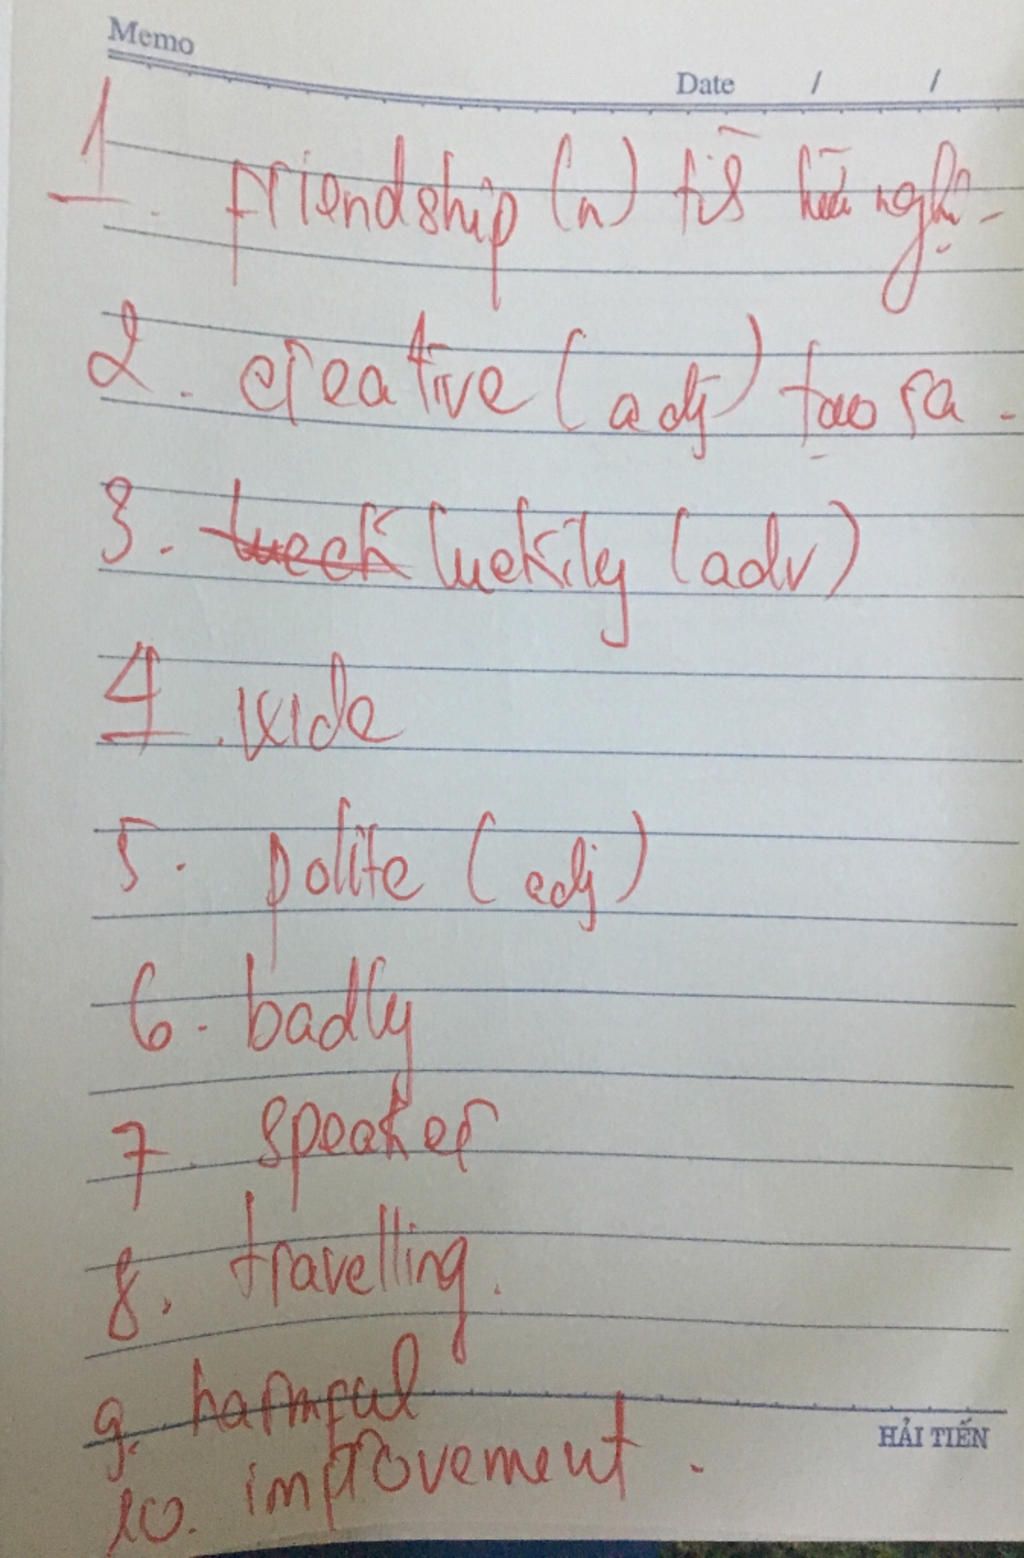 Memo
Date / /
1. friendship (n) hữu nghị.
2. creative (adj) tạo ra.
3. luckily (adv)
4. wide
5. polite (adj)
6. badly
7. speaker
8. travelling.
9. harmful
HẢI TIẾN
10. improvement.